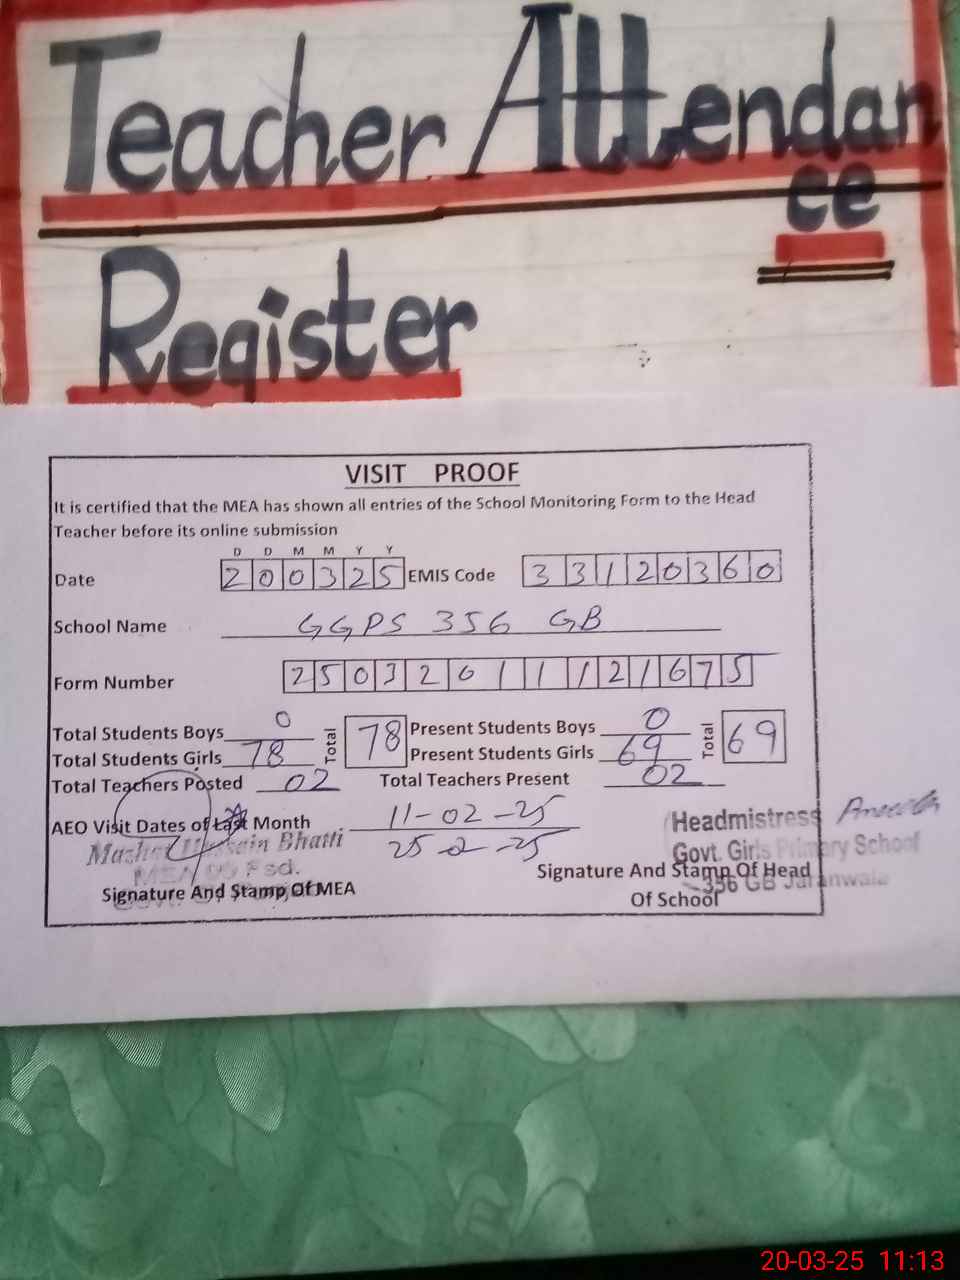 Teacher Attendan
ce
Register
VISIT PROOF
It is certified that the MEA has shown all entries of the School Monitoring Form to the Head
Teacher before its online submission
D D M M Y Y
Date 200325 EMIS Code 33120360
School Name GGPS 356 GB
Form Number 250320111121675
Total Students Boys 0 Total 78 Present Students Boys 0 Total 69
Total Students Girls 78 Present Students Girls 69
Total Teachers Posted 02 Total Teachers Present 02
AEO Visit Dates of Last Month 11-02-25
25-2-25
Mazhar Hussain Bhatti
Headmistress
Govt. Girls Primary School
356 GB Jaranwala
Signature And Stamp Of MEA
Signature And Stamp Of Head
Of School
20-03-25 11:13